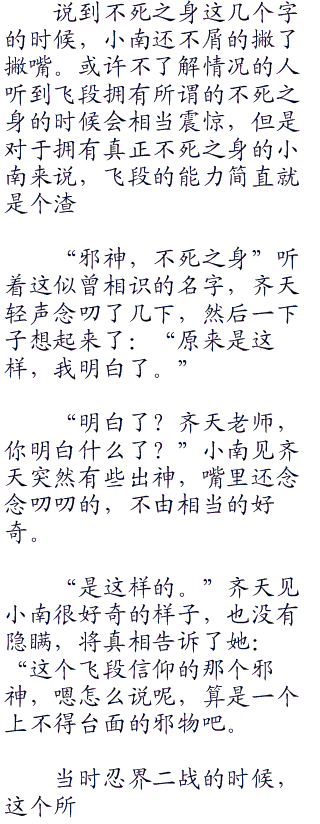 说到不死之身这几个字
的时候，小南还不屑的撇了
撇嘴。或许不了解情况的人
听到飞段拥有所谓的不死之
身的时候会相当震惊，但是
对于拥有真正不死之身的小
南来说，飞段的能力简直就
是个渣
“邪神，不死之身”听
着这似曾相识的名字，齐天
轻声念叨了几下，然后一下
子想起来了：“原来是这
样，我明白了。”
“明白了？齐天老师，
你明白什么了？”小南见齐
天突然有些出神，嘴里还念
念叨叨的，不由相当的好
奇。
“是这样的。”齐天见
小南很好奇的样子，也没有
隐瞒，将真相告诉了她：
“这个飞段信仰的那个邪
神，嗯怎么说呢，算是一个
上不得台面的邪物吧。
当时忍界二战的时候，
这个所